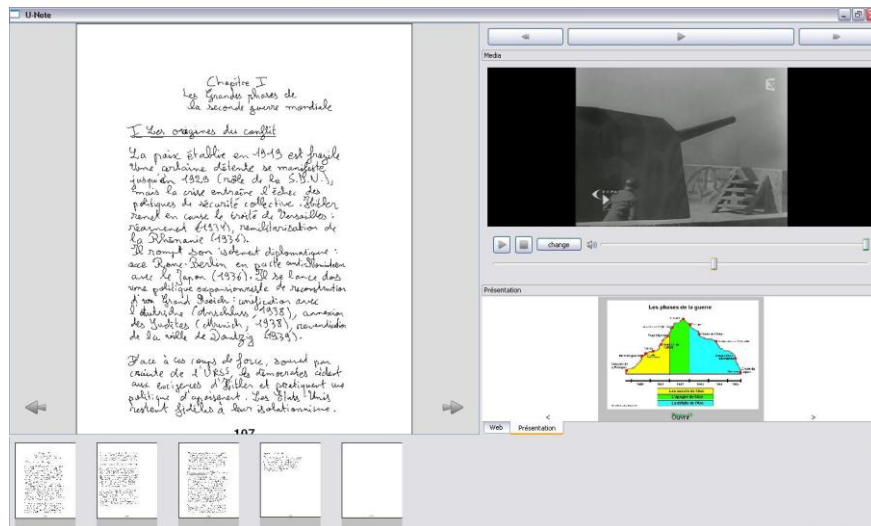 U-Note
Chapitre I
Les Grandes phases de
la seconde guerre mondiale
I Les origines du conflit
La paix établie en 1919 est fragile
Une certaine détente se manifeste
jusqu'en 1929 (rôle de la S.D.N.),
mais la crise entraîne l'échec des
politiques de sécurité collective. Hitler
remet en cause le traité de Versailles :
réarmement (1934), remilitarisation de
la Rhénanie (1936).
Il rompt son isolement diplomatique :
axe Rome-Berlin, en pacte
avec le Japon (1936). Il se lance dans
une politique expansionniste de reconstruction
d'un Grand Reich : unification avec
l'Autriche (Anschluss, 1938), annexion
des Sudètes (Munich, 1938), revendication
de la ville de Dantzig (1939).
Face à ces coups de force, souvent par
crainte de l'URSS, les démocraties cèdent
aux exigences d'Hitler et pratiquent une
politique d'apaisement. Les États Unis
restent fidèles à leur isolationnisme.
107
Media
change
Présentation
Les phases de la guerre
La défaite de l'Axe
Ouvrir
<
>
Web
Présentation